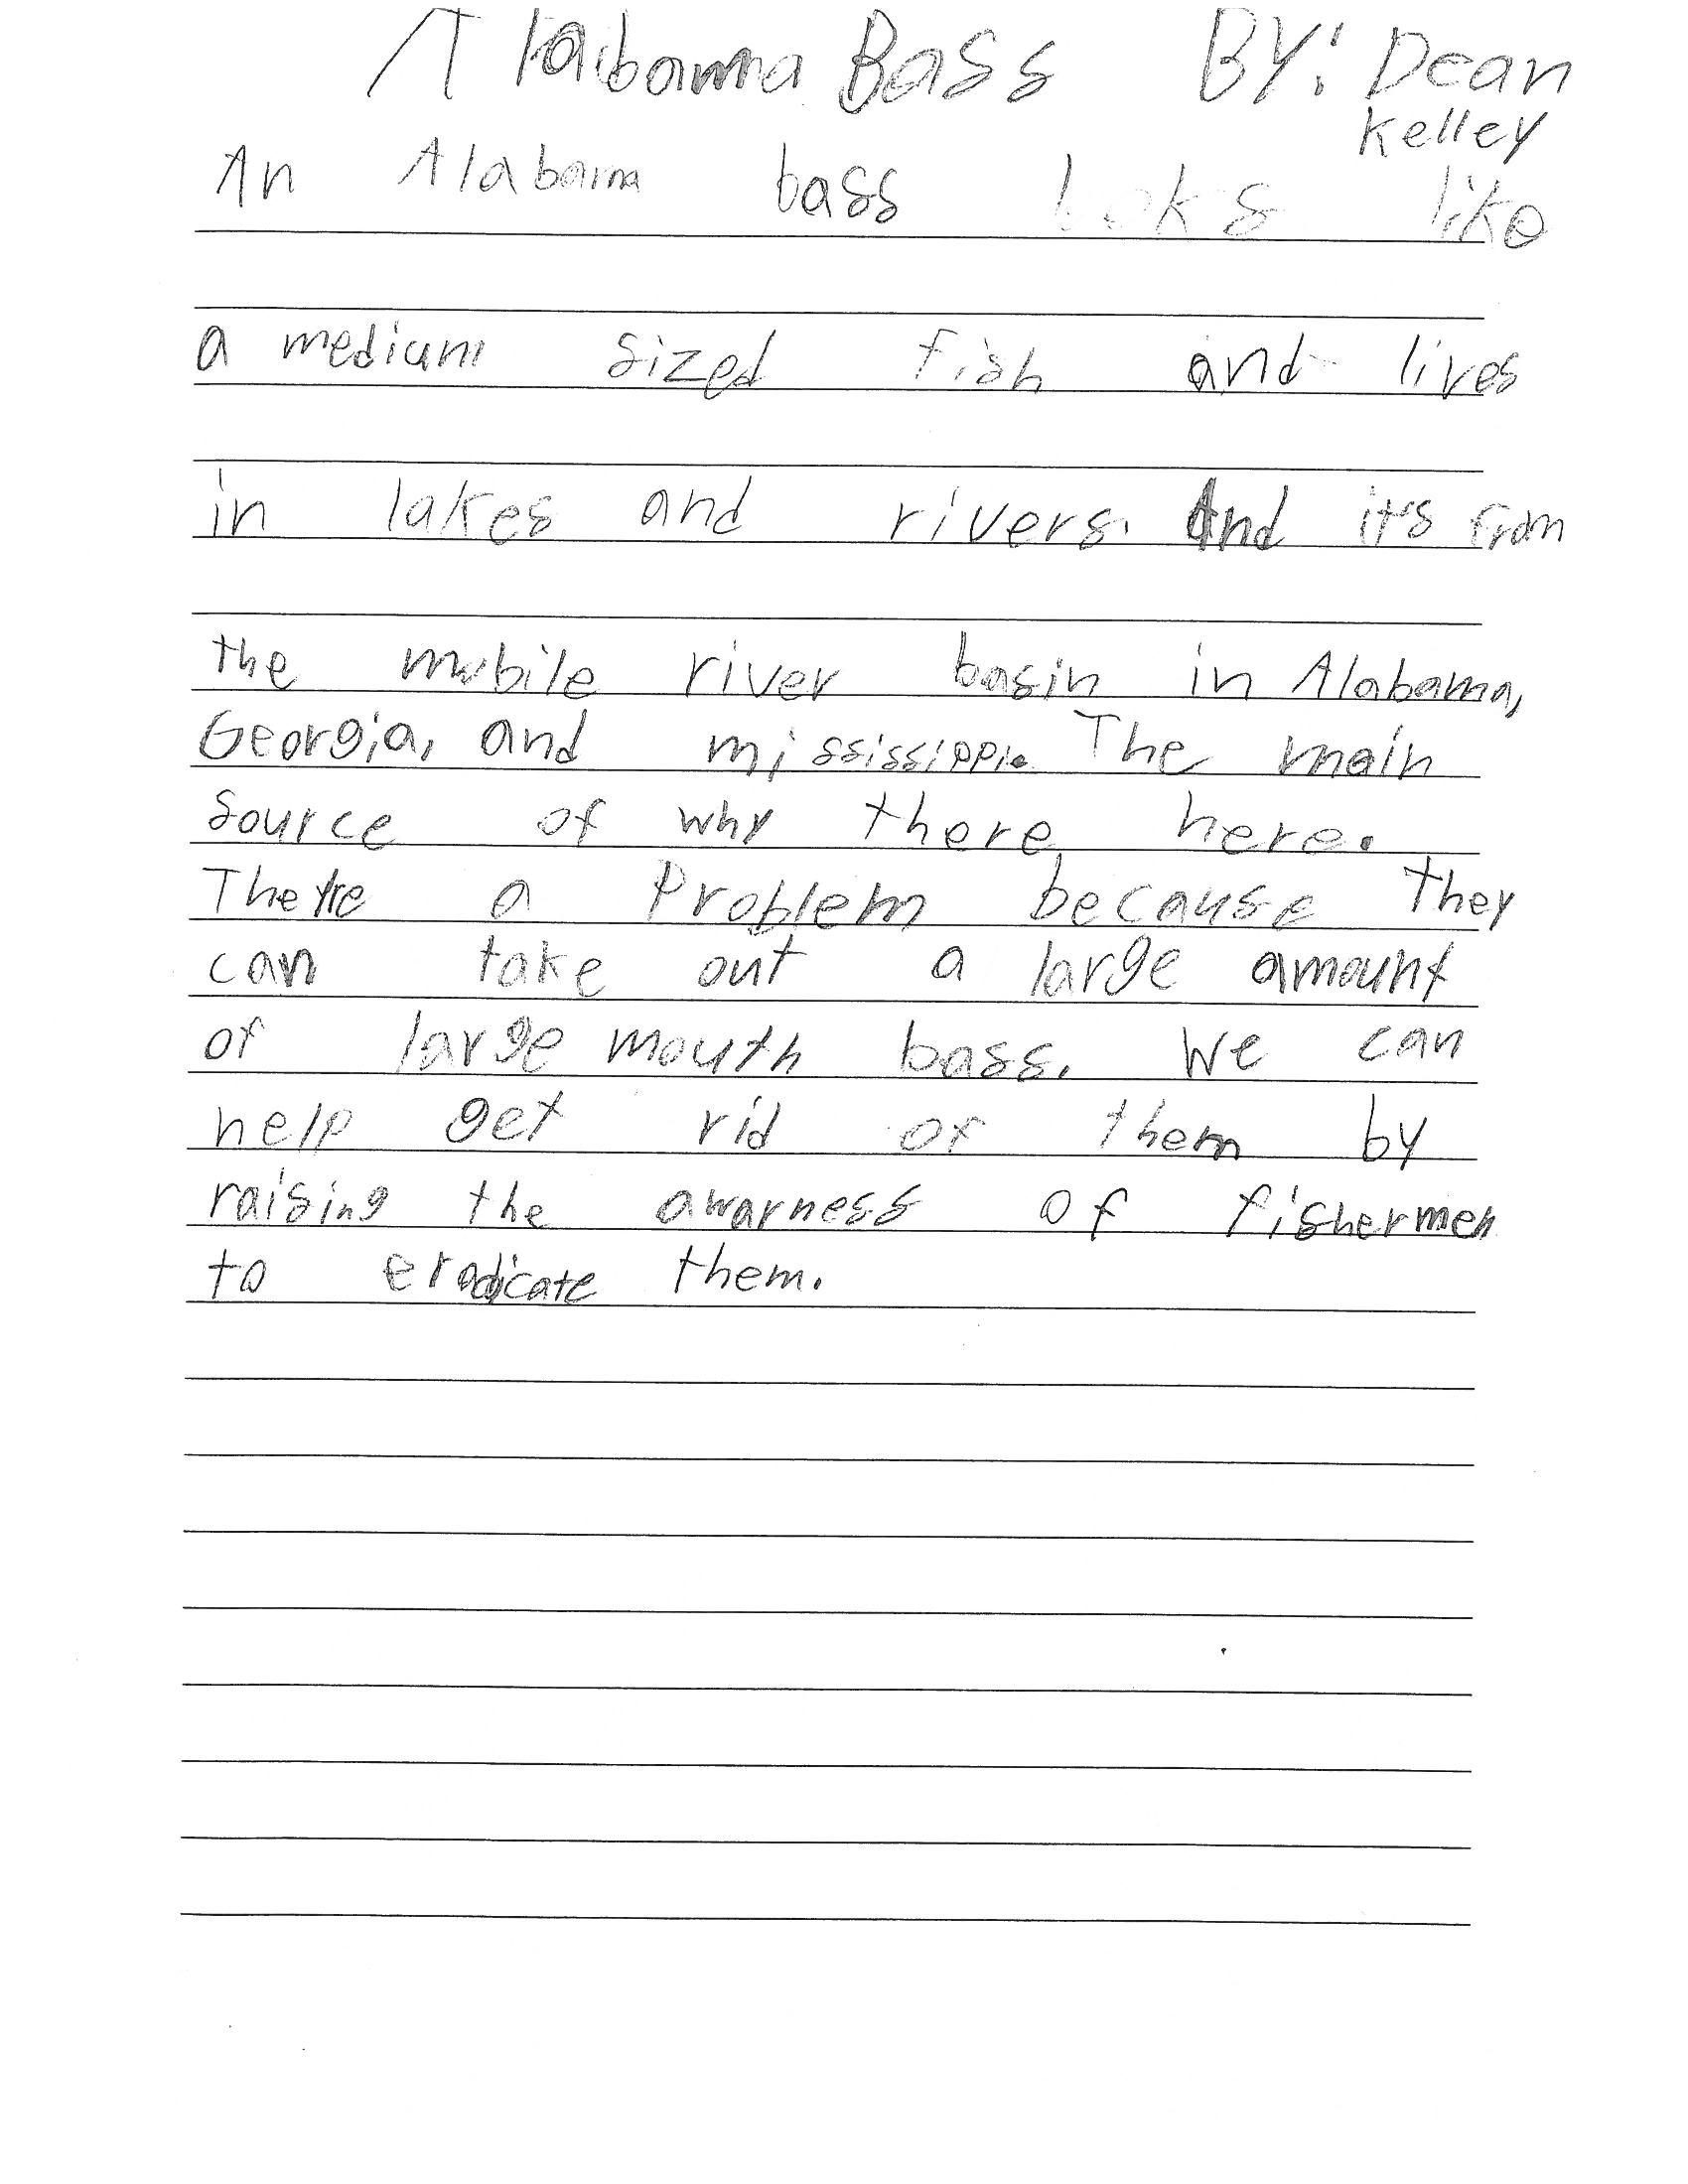 Alabama Bass BY: Dean
Kelley
An Alabama bass looks like
a medium sized fish and lives
in lakes and rivers. And it's from
the mobile river basin in Alabama,
Georgia, and mississippi. The main
source of why there here.
They're a Problem because they
can take out a large amount
of large mouth bass. We can
help get rid of them by
raising the awarness of fishermen
to eradicate them.